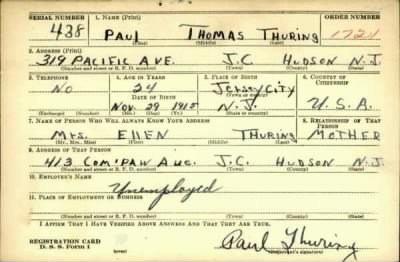 SERIAL NUMBER 1. NAME (Print) ORDER NUMBER
438 PAUL THOMAS THURING 1724
(First) (Middle) (Last)
2. ADDRESS (Print)
319 PACIFIC AVE. J.C. HUDSON N.J.
(Number and street or R. F. D. number) (Town) (County) (State)
3. TELEPHONE 4. AGE IN YEARS 5. PLACE OF BIRTH 6. COUNTRY OF CITIZENSHIP
NO 24 JERSEY CITY
DATE OF BIRTH (Town or county)
NOV. 29 1915 N.J. U.S.A.
(Exchange) (Number) (Mo.) (Day) (Yr.) (State or country)
7. NAME OF PERSON WHO WILL ALWAYS KNOW YOUR ADDRESS 8. RELATIONSHIP OF THAT PERSON
MRS. ELLEN THURING MOTHER
(Mr., Mrs., Miss) (First) (Middle) (Last)
9. ADDRESS OF THAT PERSON
413 COM'PAW AVE. J.C. HUDSON N.J.
(Number and street or R. F. D. number) (Town) (County) (State)
10. EMPLOYER'S NAME
Unemployed
11. PLACE OF EMPLOYMENT OR BUSINESS
(Number and street or R. F. D. number) (Town) (County) (State)
I AFFIRM THAT I HAVE VERIFIED ABOVE ANSWERS AND THAT THEY ARE TRUE.
REGISTRATION CARD
D. S. S. Form 1 Paul Thuring
(Registrant's signature)